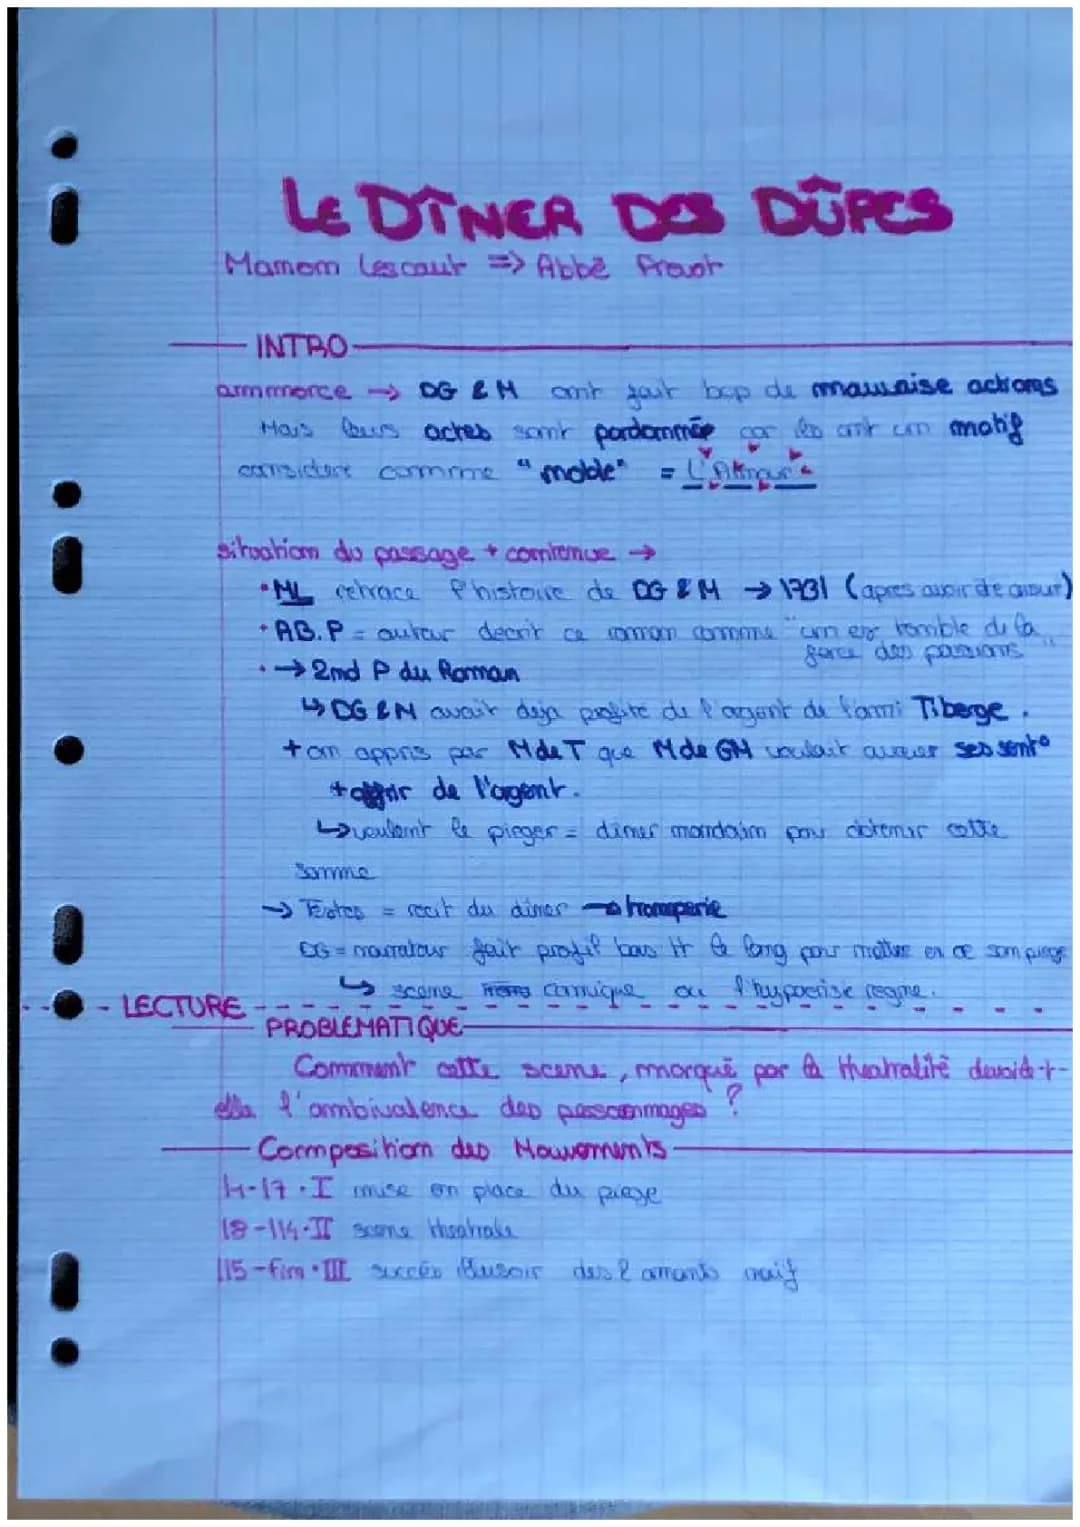 LE DÎNER DES DÛPES
Manon Lescaut => Abbé Prevot
INTRO
ammorce → DG & M ont fait bcp de mauvaise actions
Mais leurs actes sont pardonnée car ils ont un motif
considere comme "noble" = L'Amour
situation du passage + contenue →
• ML retrace l'histoire de DG & M → 1731 (apres avoir ete
• AB.P = auteur decrit ce roman comme "un ex terrible de la
force des passions"
• → 2nd P du Roman
↳ DG & M avait deja profité de l'argent de l'ami Tiberge.
+ on appris par M de T que M de GM voulait avouer ses sent°
+ offrir de l'argent.
↳ voulant le pieger = diner mondain pour obtenir cette
somme
→ Textes = recit du diner → tromperie
DG = narrateur fait profil bas tt le long pour mettre en œ son piege
↳ scene comique ou l'hypocrisie regne.
LECTURE
PROBLEMATIQUE
Comment cette scene, marqué par la theatralité devoide-t-
elle l'ambivalence des personnages ?
Composition des Mouvements
l1-l7 • I mise en place du piege
l8-l14 • II scene theatrale
l15-fin • III succés illusoir des 2 amants naif